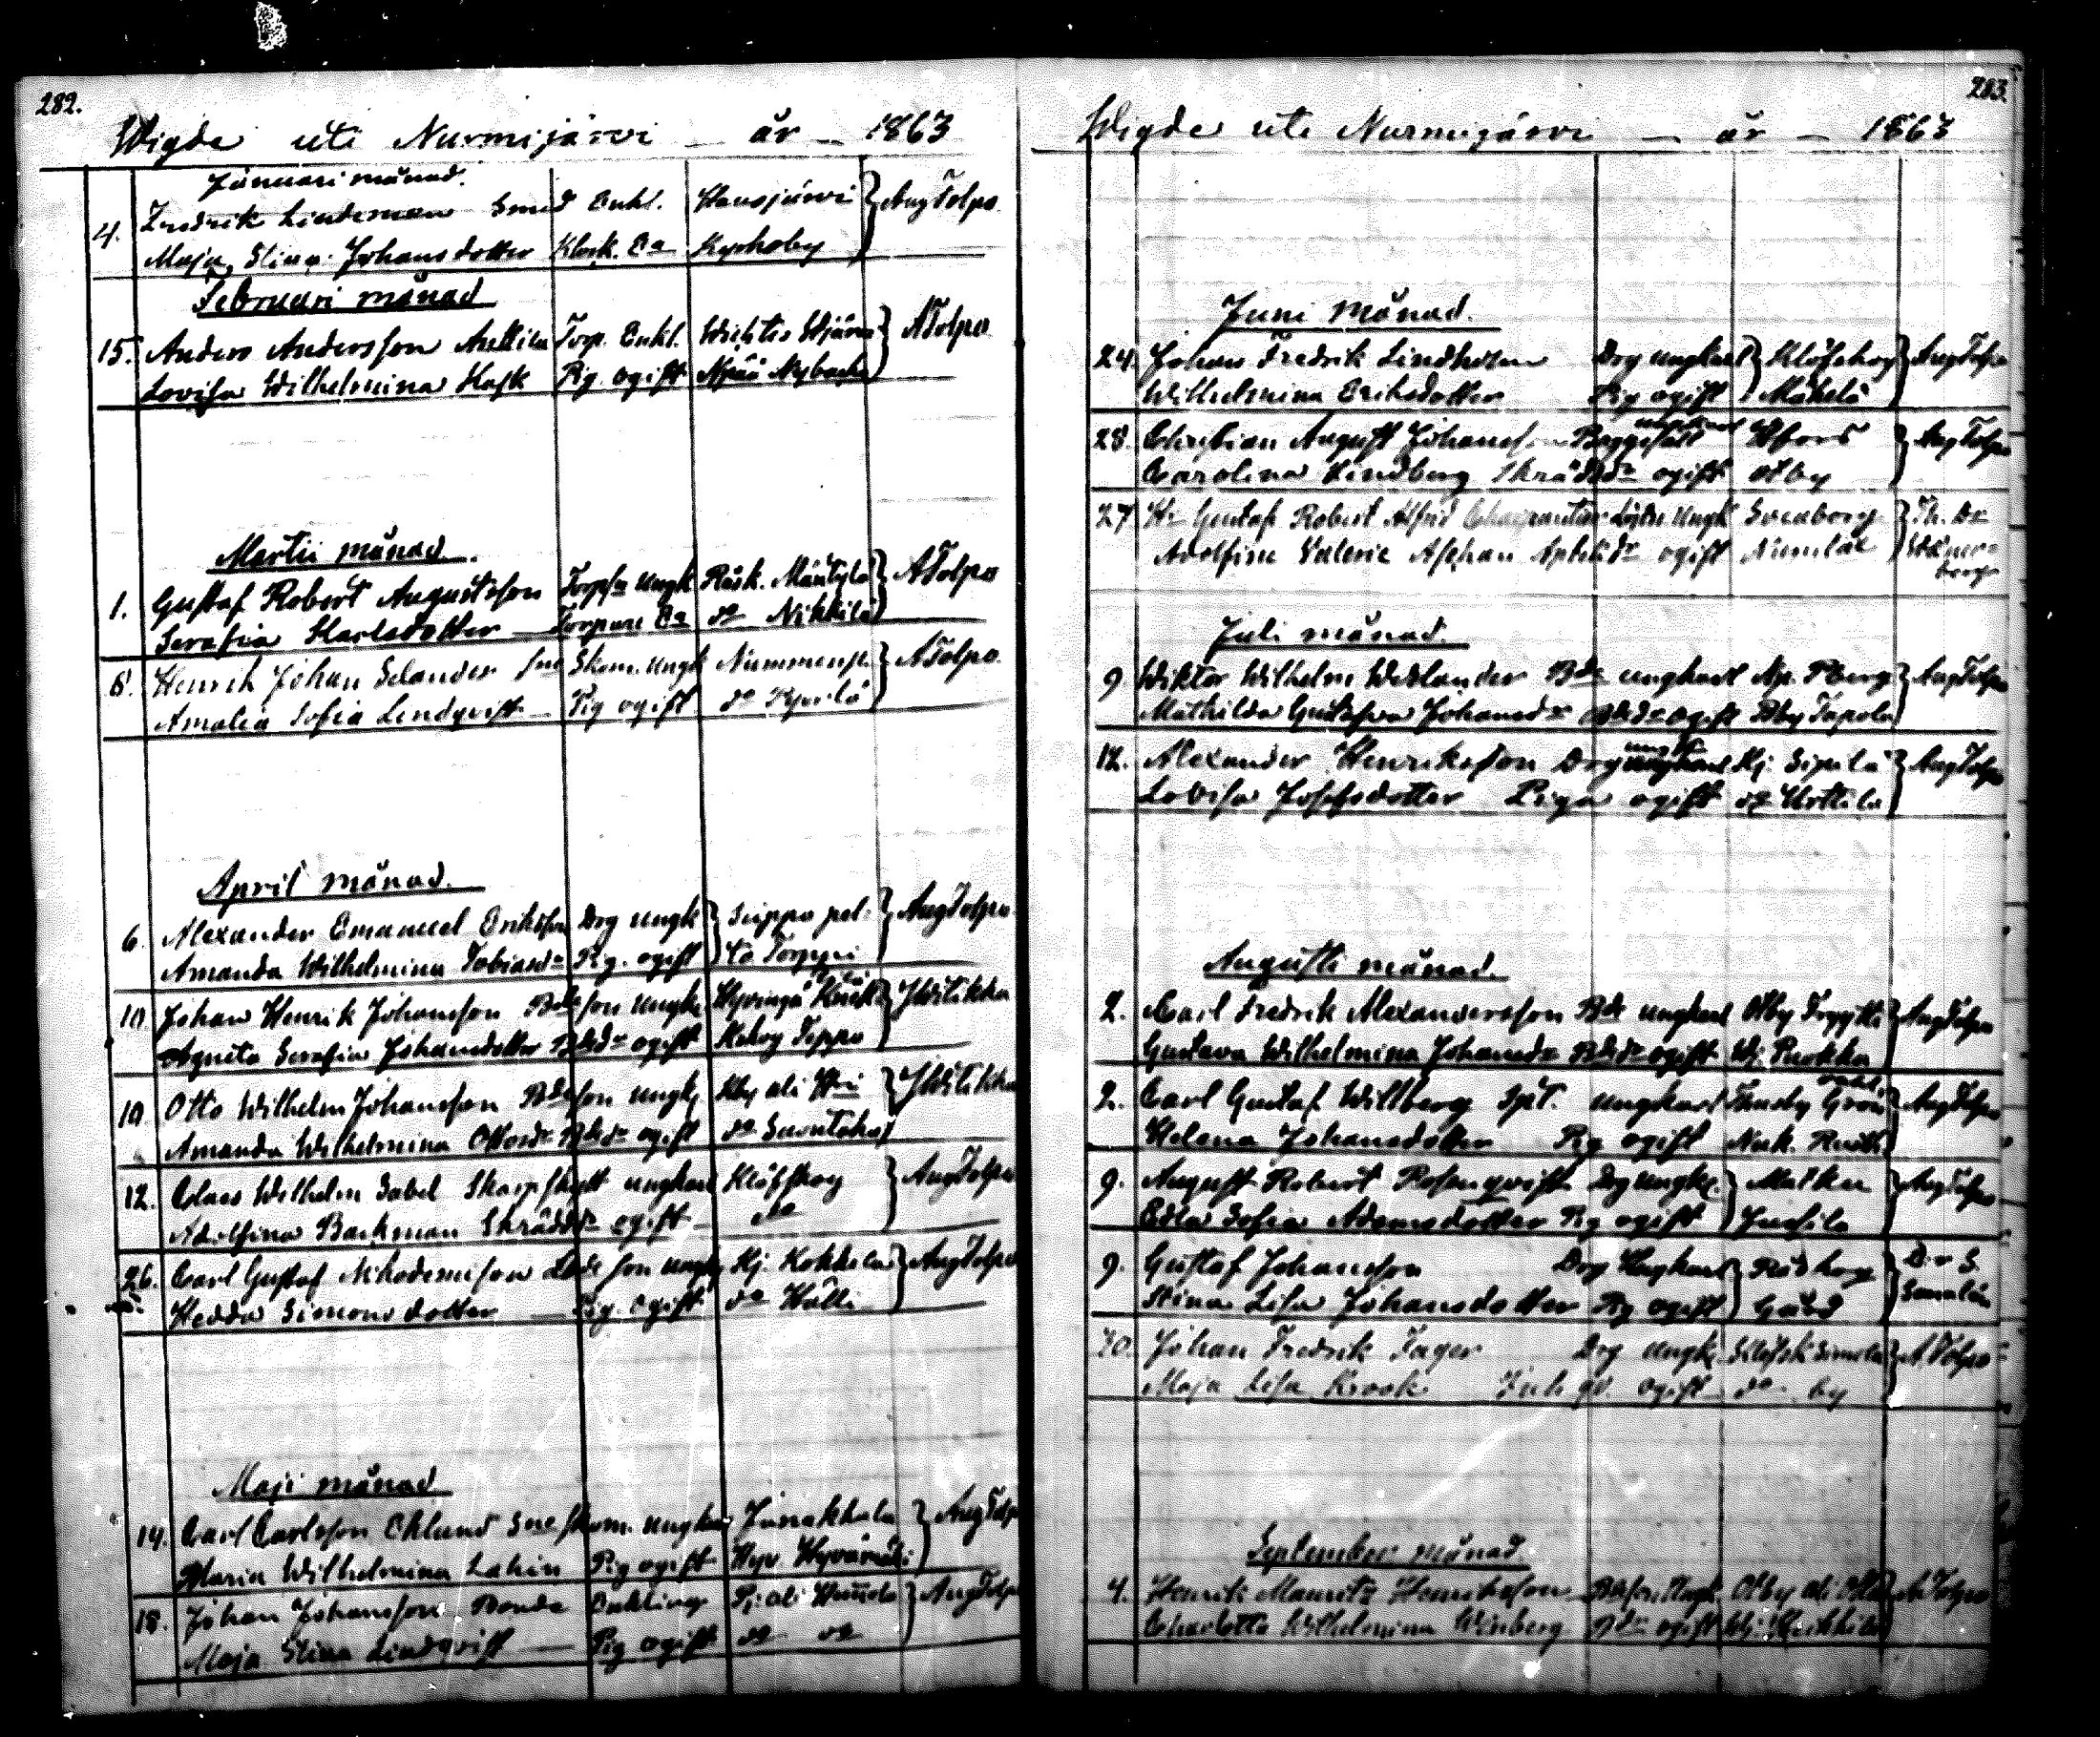 282.
Wigde uti Nurmijärvi — år — 1863
Januari månad.
4. Fredrik Lindeman Smed Enkl. Hausjärvi } Aug Tolpo
Maja Stina Johansdotter Klock. Ea Kyrkoby
Februari månad
15. Anders Andersson Anttila Torp. Enkl. Wichtis } ATolpo
Lovisa Wilhelmina Kask Pig. ogift Npää Nybacka
Martii månad.
1. Gustaf Robert Augustsson Torpsn Ungk Räsk. Mäntylä } ATolpo
Serafia Karlsdotter — Torpare Ea do Nikkilä
8. Henrik Johan Selander Skom. Ungk Nummenp. } ATolpo
Amalia Sofia Lindqvist — Pig ogift do
April månad.
6. Alexander Emanuel Eriksson Drg ungk } Seippa pel- } Aug Tolpo
Amanda Wilhelmina Tobiasdr Pig. ogift to Torppi
10. Johan Henrik Johansson Bdeson ungk Hyvingä } JWitikka
Agneta Serafia Johansdotter Bdedr ogift Kskog Seppo
10. Otto Wilhelm Johansson Bdeson ungk Kby ali } JWitikka
Amanda Wilhelmina Ottosdr Bdedr ogift do
12. Claes Wilhelm Sabel Skarpskytt ungkarl Klöfskog } Aug Tolpo
Adolfina Backman Skrädddr ogift — do
26. Carl Gustaf Nikodemisson Bde son ungk Hj. Kokkola } Aug Tolpo
Hedda Simons dotter — Pig. ogift do Hälli
Maji månad
14. Carl Carlsson Eklund Skom. ungkar Janakkala } Aug Tolp
Maria Wilhelmina Lakin Pig ogift Hyv Hyvämäki
18. Johan Johansson Bonde Enkling Pj. ali } Aug Tolpo
Maja Stina Lindqvist — Pig ogift do do
283.
Wigde uti Nurmijärvi — år — 1863
Juni månad.
24. Johan Fredrik Lindholm Drg ungkarl } Klöfskog } Aug Tolpo
Wilhelmina Eriksdotter Pig ogift Mäkelä
28. Christian August Johansson ungkarl Hfors } Aug Tolpo
Carolina Lindberg Skrädddr ogift
27. Hr Gustaf Robert Alfrid Charpentier Ungk Sveaborg } Th. Dr
Adolfine Valerie Aschan ogift Numlax Wäner-
berg
Juli månad.
9 Wiktor Wilhelm Weslander Bde ungkarl } Aug Tolpo
Mathilda Gustafva Johansdr Bdedr ogift Pby Tapola
12. Alexander Henriksson Drg ungk Hj. Sipilä } Aug Tolpo
Lovisa Josefsdotter Piga ogift do Urttila
Augusti månad.
2. Carl Fredrik Alexandersson Bde ungkarl } Aug Tolpo
Gustava Wilhelmina Johansdr Bdedr ogift Hj. Puokka
2. Carl Gustaf Willberg ungkarl Thusby } Aug Tolpo
Helena Johansdotter Pig ogift Nuk.
9. August Robert Rosenqvist Drg ungk. } } Aug Tolpo
Edla Sofia Adamsdotter Pig ogift Jusila
9. Gustaf Johansson Drg Ungkarl } Rödskog } D:r G.
Stina Lisa Johansdotter Pig ogift Gård
30. Johan Fredrik Fager Drg ungk. Klöfsk } A Tolpo
Maja Lisa Krook ogift do by
September månad.
4. Henrik Mauritz Henriksson Bdeson Ungk. } A Tolpo
Charlotta Wilhelmina Winberg ogift Hj. Heikkilä